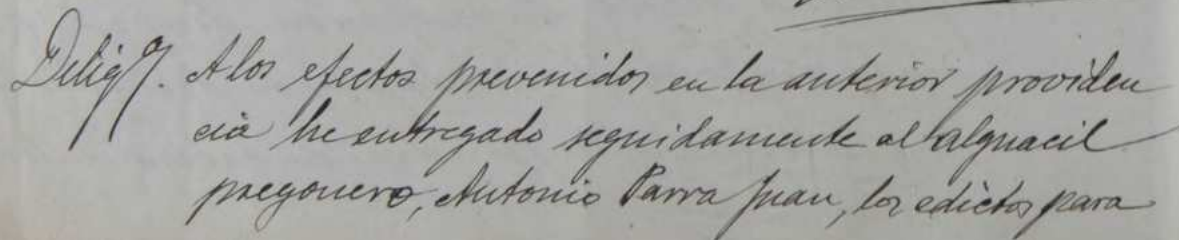 Delig.ª A los efectos prevenidos en la anterior providen
cia he entregado seguidamente al alguacil
pregonero, Antonio Parra Juan, los edictos para